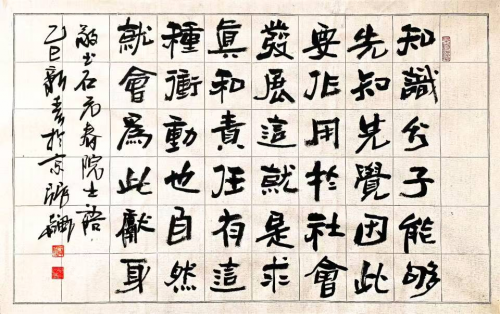 知識分子能够
先知先覺因此
要作用於社會
發展這就是求
真和責任有這
種衝動也自然
就會為此獻身
敬书石元春院士語
乙巳新春於京